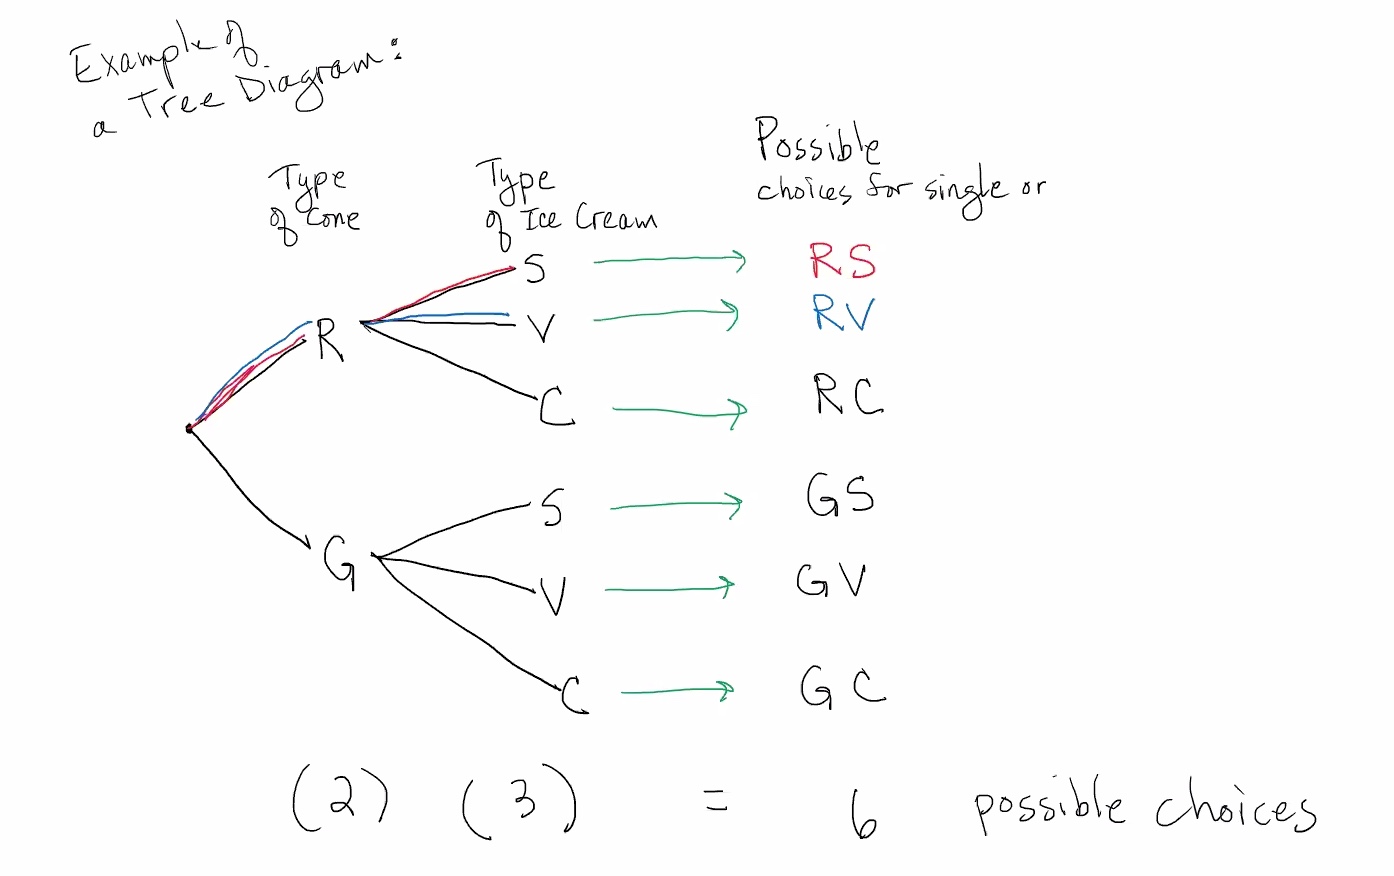 Example of
a Tree Diagram:
Type
of Cone
Type
of Ice Cream
Possible
choices for single or
R
S
V
C
RS
RV
RC
G
S
V
C
GS
GV
GC
(2) (3) = 6 possible choices